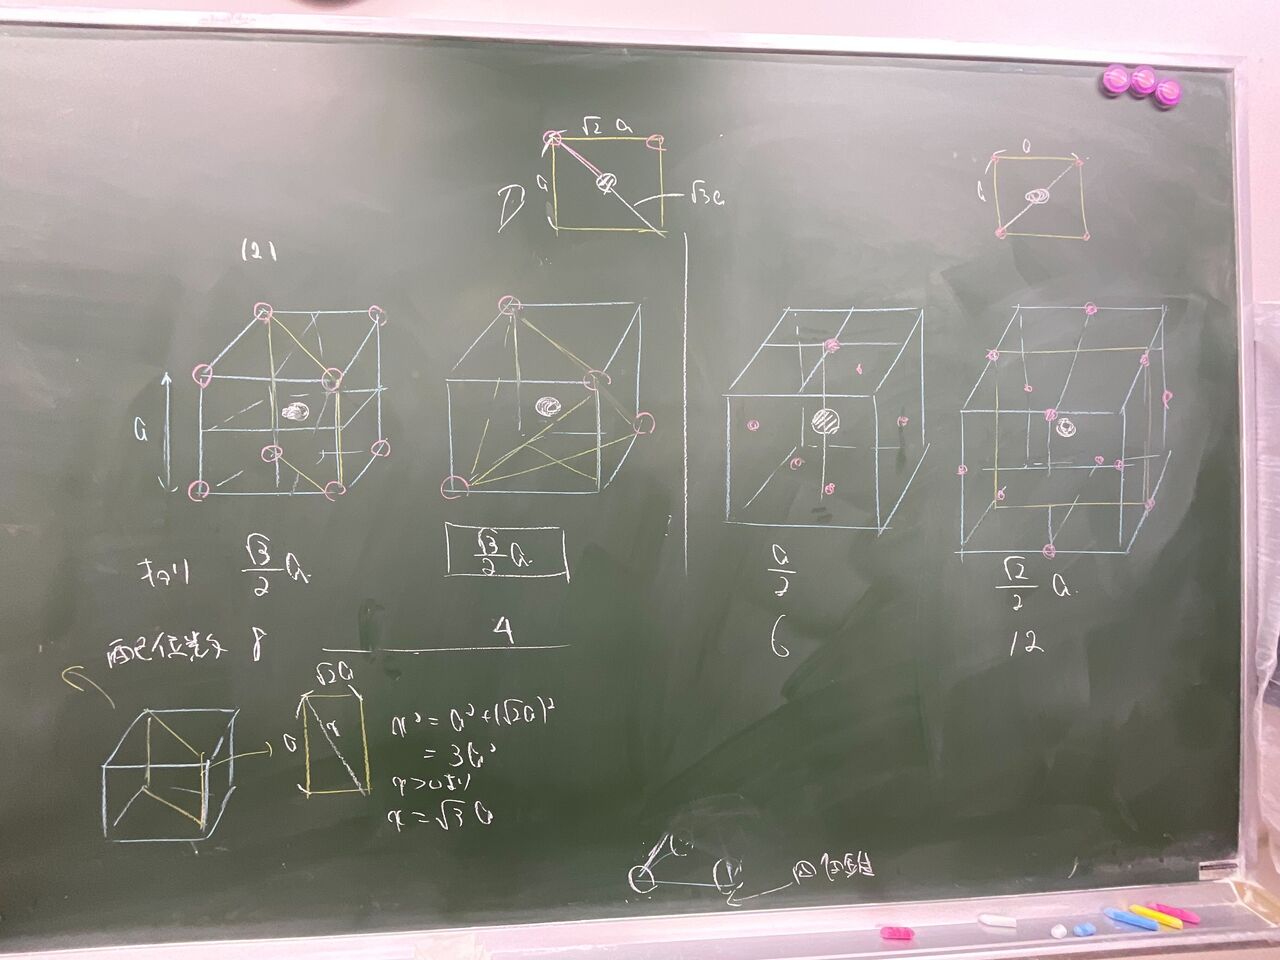 √2 a
a
√3a
a
a
(2)
a
√3/2 a
√3/2 a
a/2
√2/2 a
配位数 8
4
6
12
√2a
a
x
x² = a² + (√2a)²
= 3a²
x>0より
x = √3 a